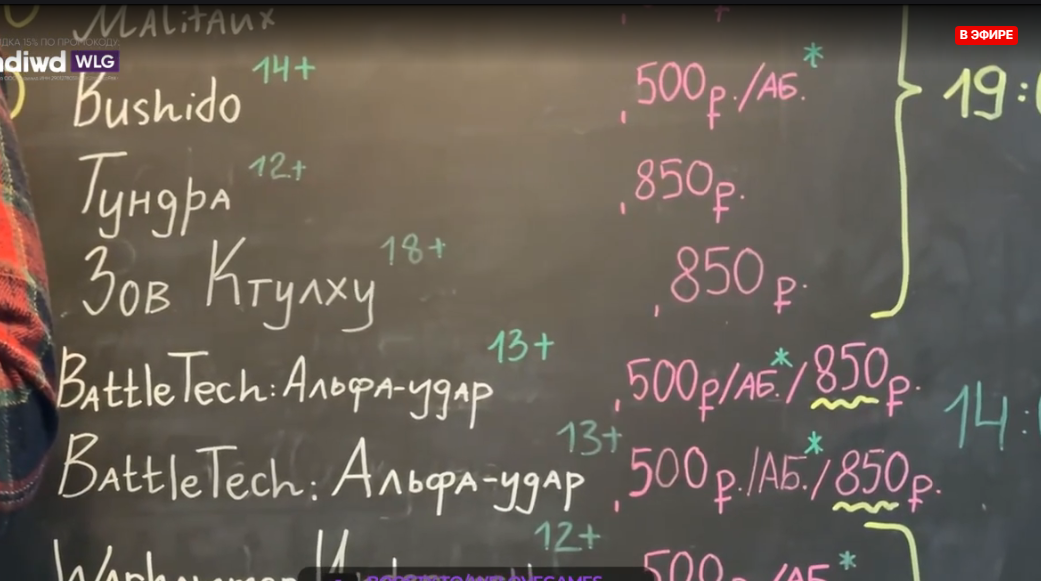 MALITAUX
СКИДКА 15% ПО ПРОМОКОДУ:
ndiwd WLG
В ЭФИРЕ
Bushido 14+ 500р./АБ.* 19:
Тундра 12+ 850р.
Зов Ктулху 18+ 850р.
BattleTech: Альфа-удар 13+ 500р/АБ.*/850р. 14:
BattleTech: Альфа-удар 13+ 500р./АБ.*/850р.
12+ 500 /АБ *